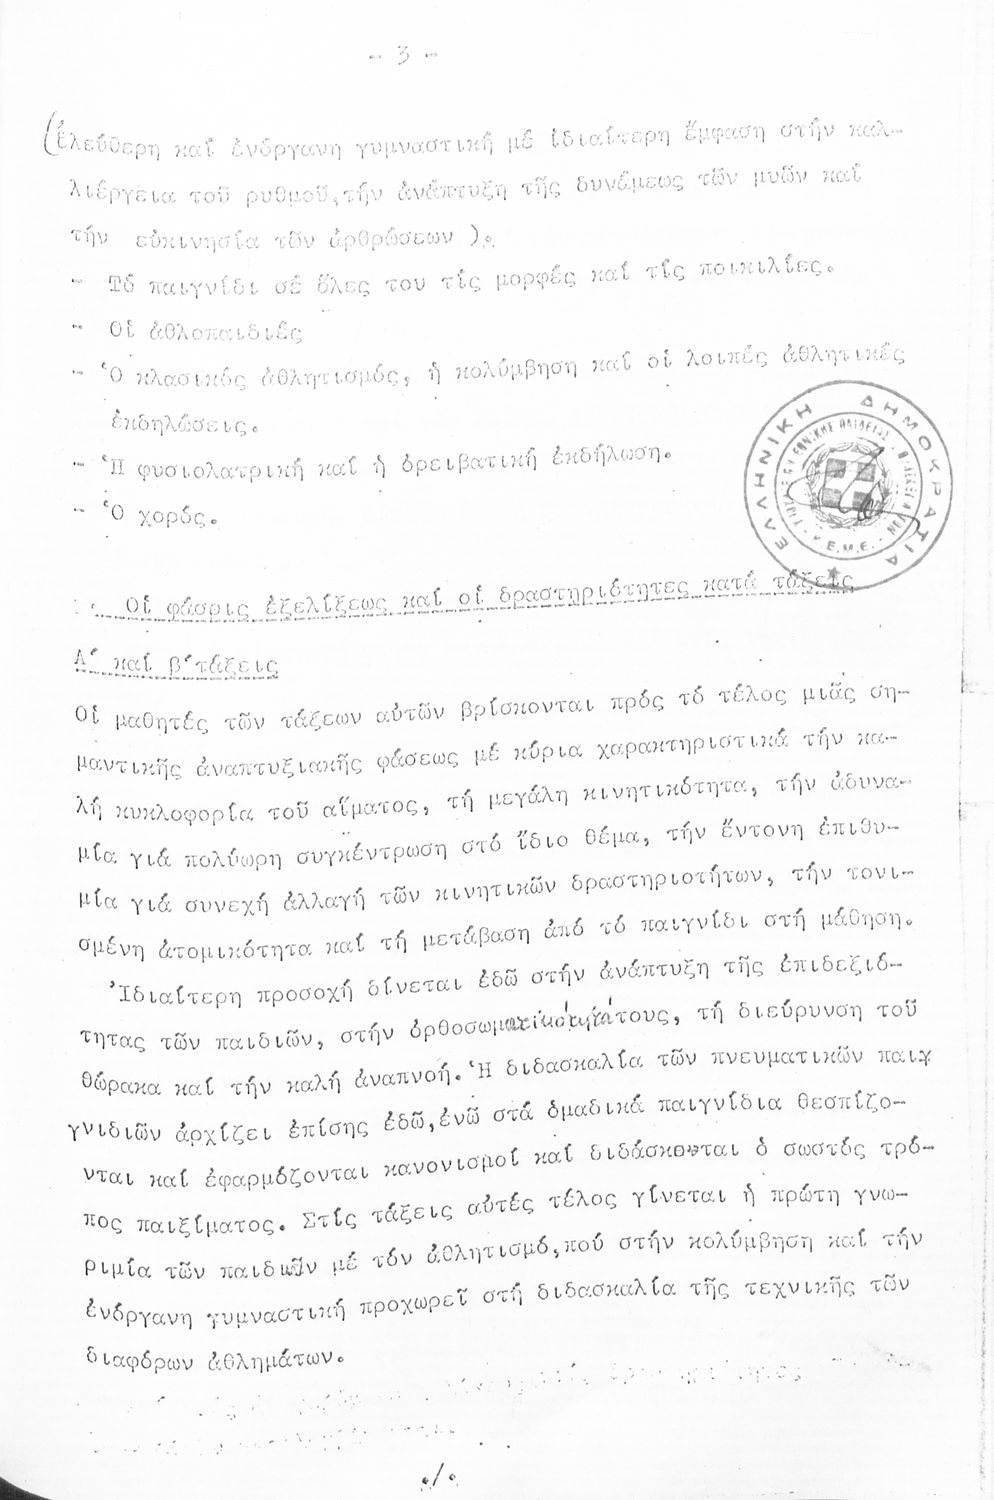 - 3 -
(ἐλεύθερη καί ἐνόργανη γυμναστική μέ ἰδιαίτερη ἔμφαση στήν καλ-
λιέργεια τοῦ ρυθμοῦ,τήν ἀνάπτυξη τῆς δυνάμεως τῶν μυῶν καί
τήν εὐκινησία τῶν ἀρθρώσεων ).
- Τό παιγνίδι σέ ὅλες του τίς μορφές καί τίς ποικιλίες.
- Οἱ ἀθλοπαιδιές
- Ὁ κλασικός ἀθλητισμός, ἡ κολύμβηση καί οἱ λοιπές ἀθλητικές
ἐκδηλώσεις.
- Ἡ φυσιολατρική καί ἡ ὀρειβατική ἐκδήλωση.
- Ὁ χορός.
ΕΛΛΗΝΙΚΗ ΔΗΜΟΚΡΑΤΙΑ
Κ.Ε.Μ.Ε.
Οἱ φάσρις ἐξελίξεως καί οἱ δραστηριότητες κατά τάξεις
Α΄ καί β΄τάξεις
Οἱ μαθητές τῶν τάξεων αὐτῶν βρίσκονται πρός τό τέλος μιᾶς ση-
μαντικῆς ἀναπτυξιακῆς φάσεως μέ κύρια χαρακτηριστικά τήν κα-
λή κυκλοφορία τοῦ αἵματος, τή μεγάλη κινητικότητα, τήν ἀδυνα-
μία γιά πολύωρη συγκέντρωση στό ἴδιο θέμα, τήν ἔντονη ἐπιθυ-
μία γιά συνεχή ἀλλαγή τῶν κινητικῶν δραστηριοτήτων, τήν τονι-
σμένη ἀτομικότητα καί τή μετάβαση ἀπό τό παιγνίδι στή μάθηση.
Ἰδιαίτερη προσοχή δίνεται ἐδῶ στήν ἀνάπτυξη τῆς ἐπιδεξιό-
τητας τῶν παιδιῶν, στήν ὀρθοσωματικότητά τους, τή διεύρυνση τοῦ
θώρακα καί τήν καλή ἀναπνοή. Ἡ διδασκαλία τῶν πνευματικῶν παιγ
γνιδιῶν ἀρχίζει ἐπίσης ἐδῶ,ἐνῶ στά ὁμαδικά παιγνίδια θεσπίζο-
νται καί ἐφαρμόζονται κανονισμοί καί διδάσκονται ὁ σωστός τρό-
πος παιξίματος. Στίς τάξεις αὐτές τέλος γίνεται ἡ πρώτη γνω-
ριμία τῶν παιδιῶν μέ τόν ἀθλητισμό,πού στήν κολύμβηση καί τήν
ἐνόργανη γυμναστική προχωρεῖ στή διδασκαλία τῆς τεχνικῆς τῶν
διαφόρων ἀθλημάτων.
./.